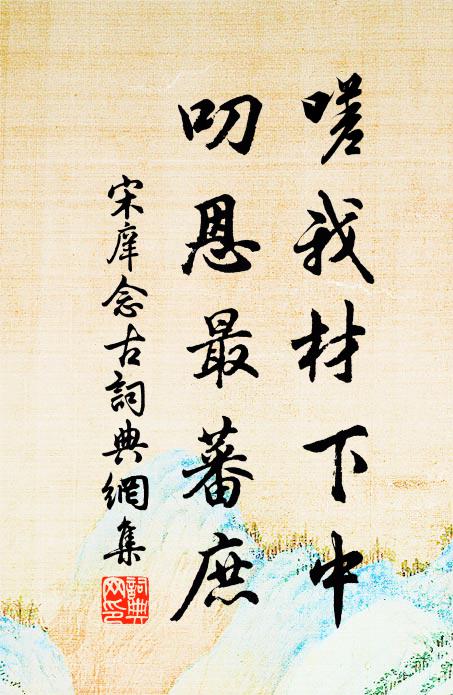 嗟我材下中
叨恩最蕃庶
宋庠念古詞典網集
詞典網印